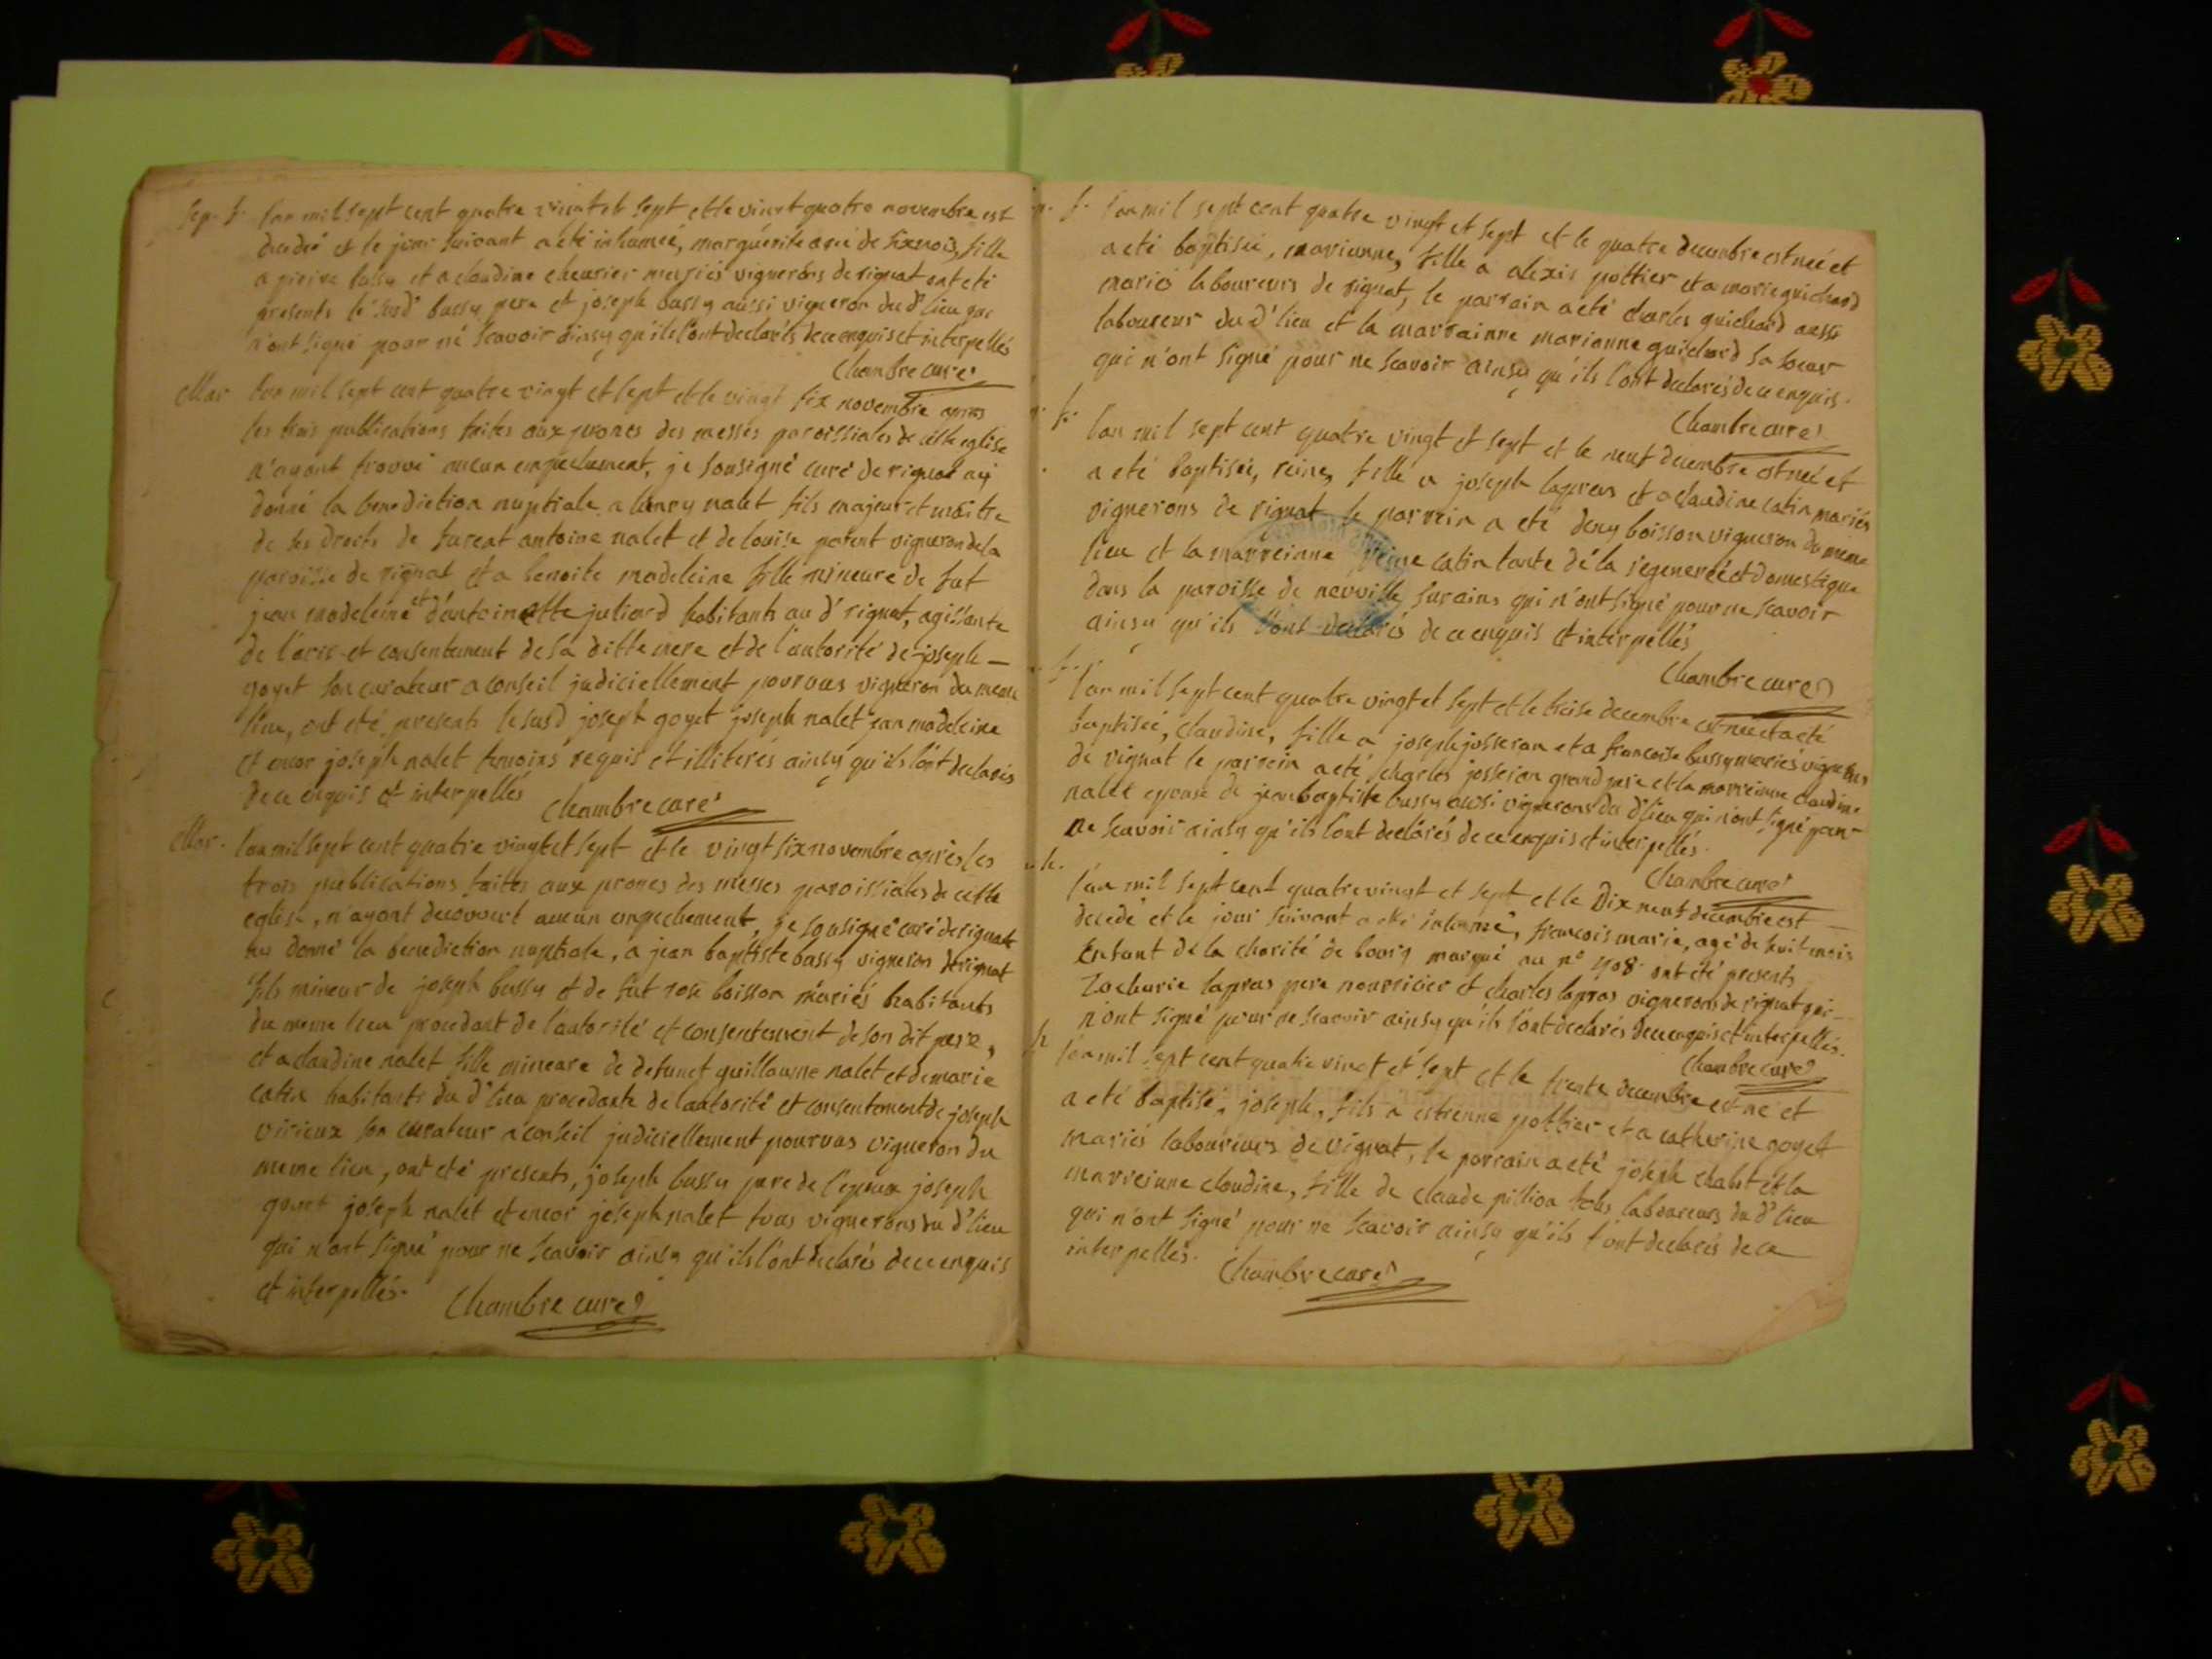 Sep. f. l'an mil sept cent quatre vingt et sept et le vingt quatre novembre est
decedée et le jour suivant a été inhumée, marguerite agée de six mois, fille
a pierre bussy et a claudine cheurier mariés vignerons de rignat ont eté
presents le susd' bussy pere et joseph bussy aussi vigneron du d' lieu qui
n'ont signé pour ne scavoir ainsy qu'ils l'ont declarés de ce enquis et interpellés
Chambre curé
Mar. l'an mil sept cent quatre vingt et sept et le vingt six novembre apres
les trois publications faites aux prones des messes paroissiales de cette eglise
n'ayant trouvé aucun empechement, je sousigné curé de rignat ay
donné la benediction nuptiale a henry nalet fils majeur et maitre
de ses droits de furent antoine nalet et de louise patent vigneron de la
paroisse de rignat et a benoite madeleine fille mineure de fut
jean madeleine et d'antoinette juliard habitants au d' rignat, agissante
de l'avis et consentement de sa ditte mere et de l'autorité de joseph
goyet son curateur a conseil judiciellement pourvus vigneron du meme
lieu, ont eté presents le susd joseph goyet joseph nalet jean madeleine
et encor joseph nalet temoins requis et illiterés ainsy qu'ils l'ont declarés
de ce enquis et interpellés Chambre curé
Mar. l'an mil sept cent quatre vingt et sept et le vingt six novembre apres les
trois publications faites aux prones des messes paroissiales de cette
eglise, n'ayant decouvert aucun empechement, je sousigné curé de rignat
ay donné la benediction nuptiale, a jean baptiste bussy vigneron de rignat
fils mineur de joseph bussy et de fut rose boisson mariés habitants
du meme lieu procedant de l'autorité et consentement de son dit pere,
et a claudine nalet fille mineure de defunct guillaume nalet et de marie
catin habitants du d' lieu procedante de lautorité et consentement de joseph
virieux son curateur a conseil judiciellement pourvus vigneron du
meme lieu, ont eté presents, joseph bussy pere de l'epoux joseph
goyet joseph nalet et encor joseph nalet tous vignerons du d' lieu
qui n'ont signé pour ne scavoir ainsy qu'ils l'ont declarés de ce enquis
et interpellés. Chambre curé
n. f. l'an mil sept cent quatre vingt et sept et le quatre decembre est neé et
a eté baptisée, marianne, fille a alexis pottier et a marie guichard
mariés laboureurs de rignat, le parrain a été charles guichard aussi
laboureur du d' lieu et la marrainne marianne guichard sa soeur
qui n'ont signé pour ne scavoir ainsy qu'ils l'ont declarés de ce enquis.
Chambre curé
n. f. l'an mil sept cent quatre vingt et sept et le neuf decembre est neé et
a eté baptisée, reine, fille a joseph lapras et a claudine catin mariés
vignerons de rignat le parrein a eté deny boisson vigneron du meme
lieu et la marreinne reine catin tante de la regenereé et domestique
dans la paroisse de neuville sur ains qui n'ont signé pour ne scavoir
ainsy qu'ils l'ont declarés de ce enquis et interpellés
Chambre curé
f. l'an mil sept cent quatre vingt et sept et le treise decembre est neé et a eté
baptisée, claudine, fille a joseph josseran et a francoise bussy mariés vignerons
de rignat le parrein a eté charles josseran grand pere et la marreinne claudine
nalet epouse de jean baptiste bussy aussi vignerons du d' lieu qui n'ont signé pour
ne scavoir ainsy qu'ils l'ont declarés de ce enquis et interpellés.
Chambre curé
h. l'an mil sept cent quatre vingt et sept et le Dix neuf decembre est
decedé et le jour suivant a eté inhumé, francois marie, agé de huit mois
Enfant de la charité de bourg marqué au n° 408. ont été presents
Zacharie lapras pere nourricier et charles lapras vignerons de rignat qui
n'ont signé pour ne scavoir ainsy qu'ils l'ont declarés de ce enquis et interpellés.
Chambre curé
h l'an mil sept cent quatre vingt et sept et le trente decembre est né et
a eté baptisé, joseph, fils a estienne pottier et a catherine goyet
mariés laboureurs de rignat, le parrain a eté joseph chalet et la
marreinne claudine, fille de claude pillion tous laboureurs du d' lieu
qui n'ont signé pour ne scavoir ainsy qu'ils l'ont declarés de ce
interpellés. Chambre curé